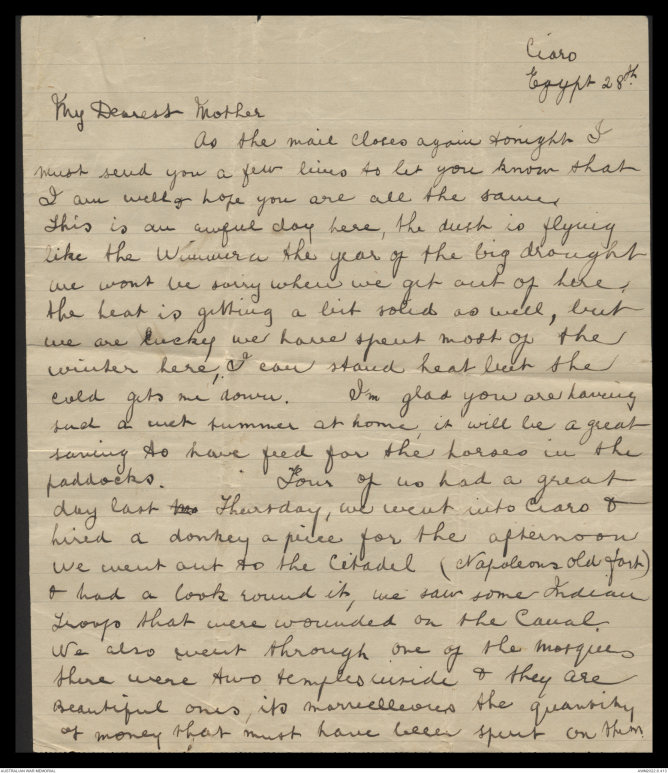 Ciaro
Egypt 28th
My Dearest Mother
As the mail closes again tonight I
must send you a few lines to let you know that
I am well & hope you are all the same,
This is an awful day here, the dust is flying
like the Wimmera the year of the big drought
we wont be sorry when we get out of here,
the heat is getting a bit solid as well, but
we are lucky we have spent most of the
winter here, I can stand heat but the
cold gets me down. I'm glad you are having
such a wet summer at home, it will be a great
saving to have feed for the horses in the
paddocks. Four of us had a great
day last Thursday, we went into Ciaro &
hired a donkey a piece for the afternoon
we went out to the Citadel (Napoleons old fort)
& had a look round it, we saw some Indian
Troops that were wounded on the Canal.
We also went through one of the mosques
there were two temples inside & they are
beautiful ones, its marvelleous the quantity
of money that must have been spent on them
AUSTRALIAN WAR MEMORIAL